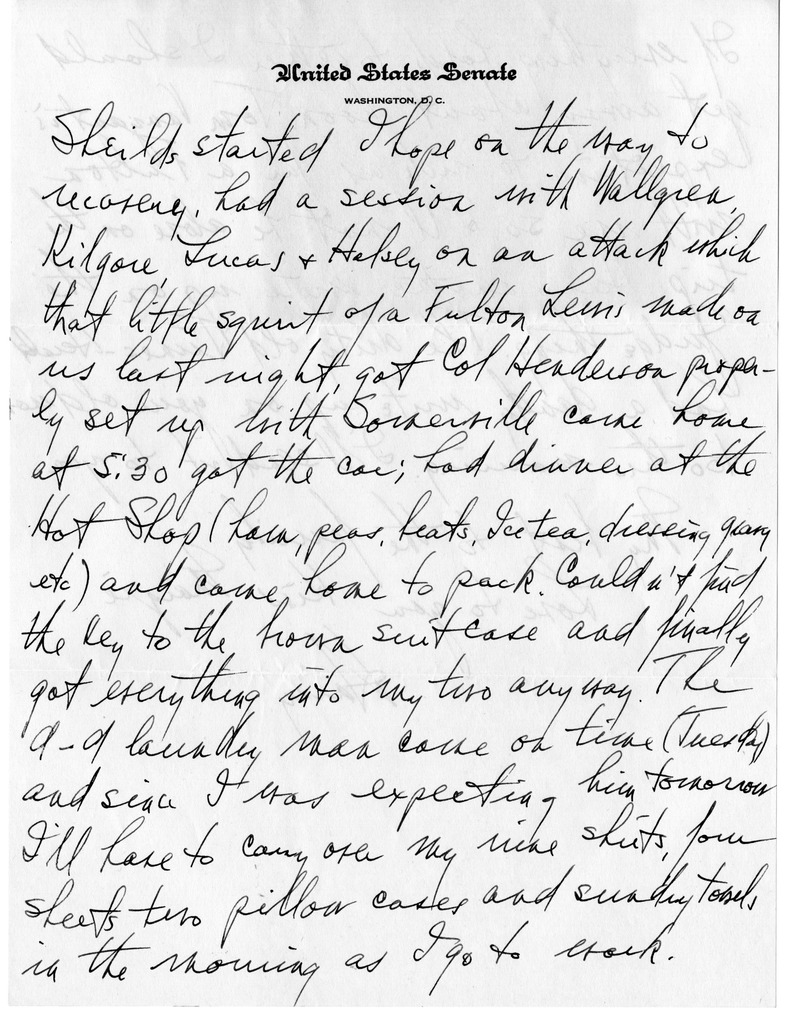 United States Senate
WASHINGTON, D. C.
Sheilds started I hope on the way to
recovery, had a session with Wallgren,
Kilgore, Lucas & Halsey on an attack which
that little squirt of a Fulton Lewis made on
us last night, got Col Henderson proper-
ly set up with Somerville came home
at 5:30 got the car; had dinner at the
Hot Shop (ham, peas, beats, Ice tea, dressing gravy
etc) and came home to pack. Couldn't find
the key to the brown suitcase and finally
got everything into my two anyway. The
d-d laundry man came on time (Tuesday)
and since I was expecting him tomorrow
I'll have to carry over my nine shirts, four
sheets two pillow cases and sundry towels
in the morning as I go to work.